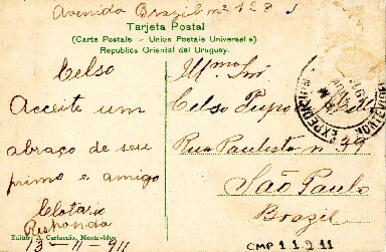 Avenida Brazil nº 128
Tarjeta Postal
(Carte Postale - Union Postale Universelle)
Republica Oriental del Uruguay.
Celso
Acceite um
abraço de seu
primo e amigo
Clotario
Responda
13-11-911
Illmo Snr
Celso
Rua Paulista nº 39
São Paulo
Brazil
EXPEDICION
MONTEVIDEO
Editor: A. Carluccio, Montevideo
CMP 1 1 9 11